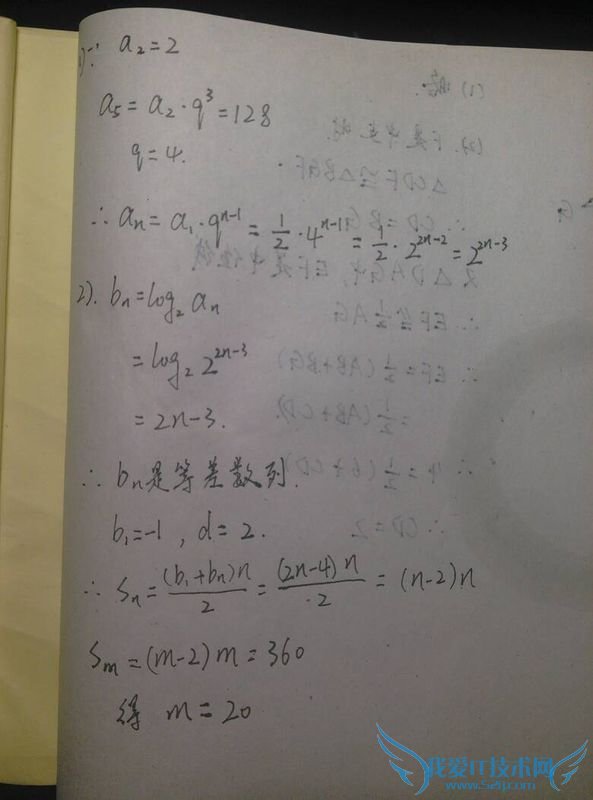 1)∵ a₂=2
a₅=a₂·q³=128
q=4.
∴ aₙ=a₁·qⁿ⁻¹=1/2·4ⁿ⁻¹=1/2·2²ⁿ⁻²=2²ⁿ⁻³
2). bₙ=log₂aₙ
=log₂2²ⁿ⁻³
=2n-3.
∴ bₙ是等差数列.
b₁=-1, d=2.
∴ Sₙ=(b₁+bₙ)n/2=(2n-4)n/2=(n-2)n
Sₘ=(m-2)m=360
得 m=20
我爱IT技术网
www.52ij.com